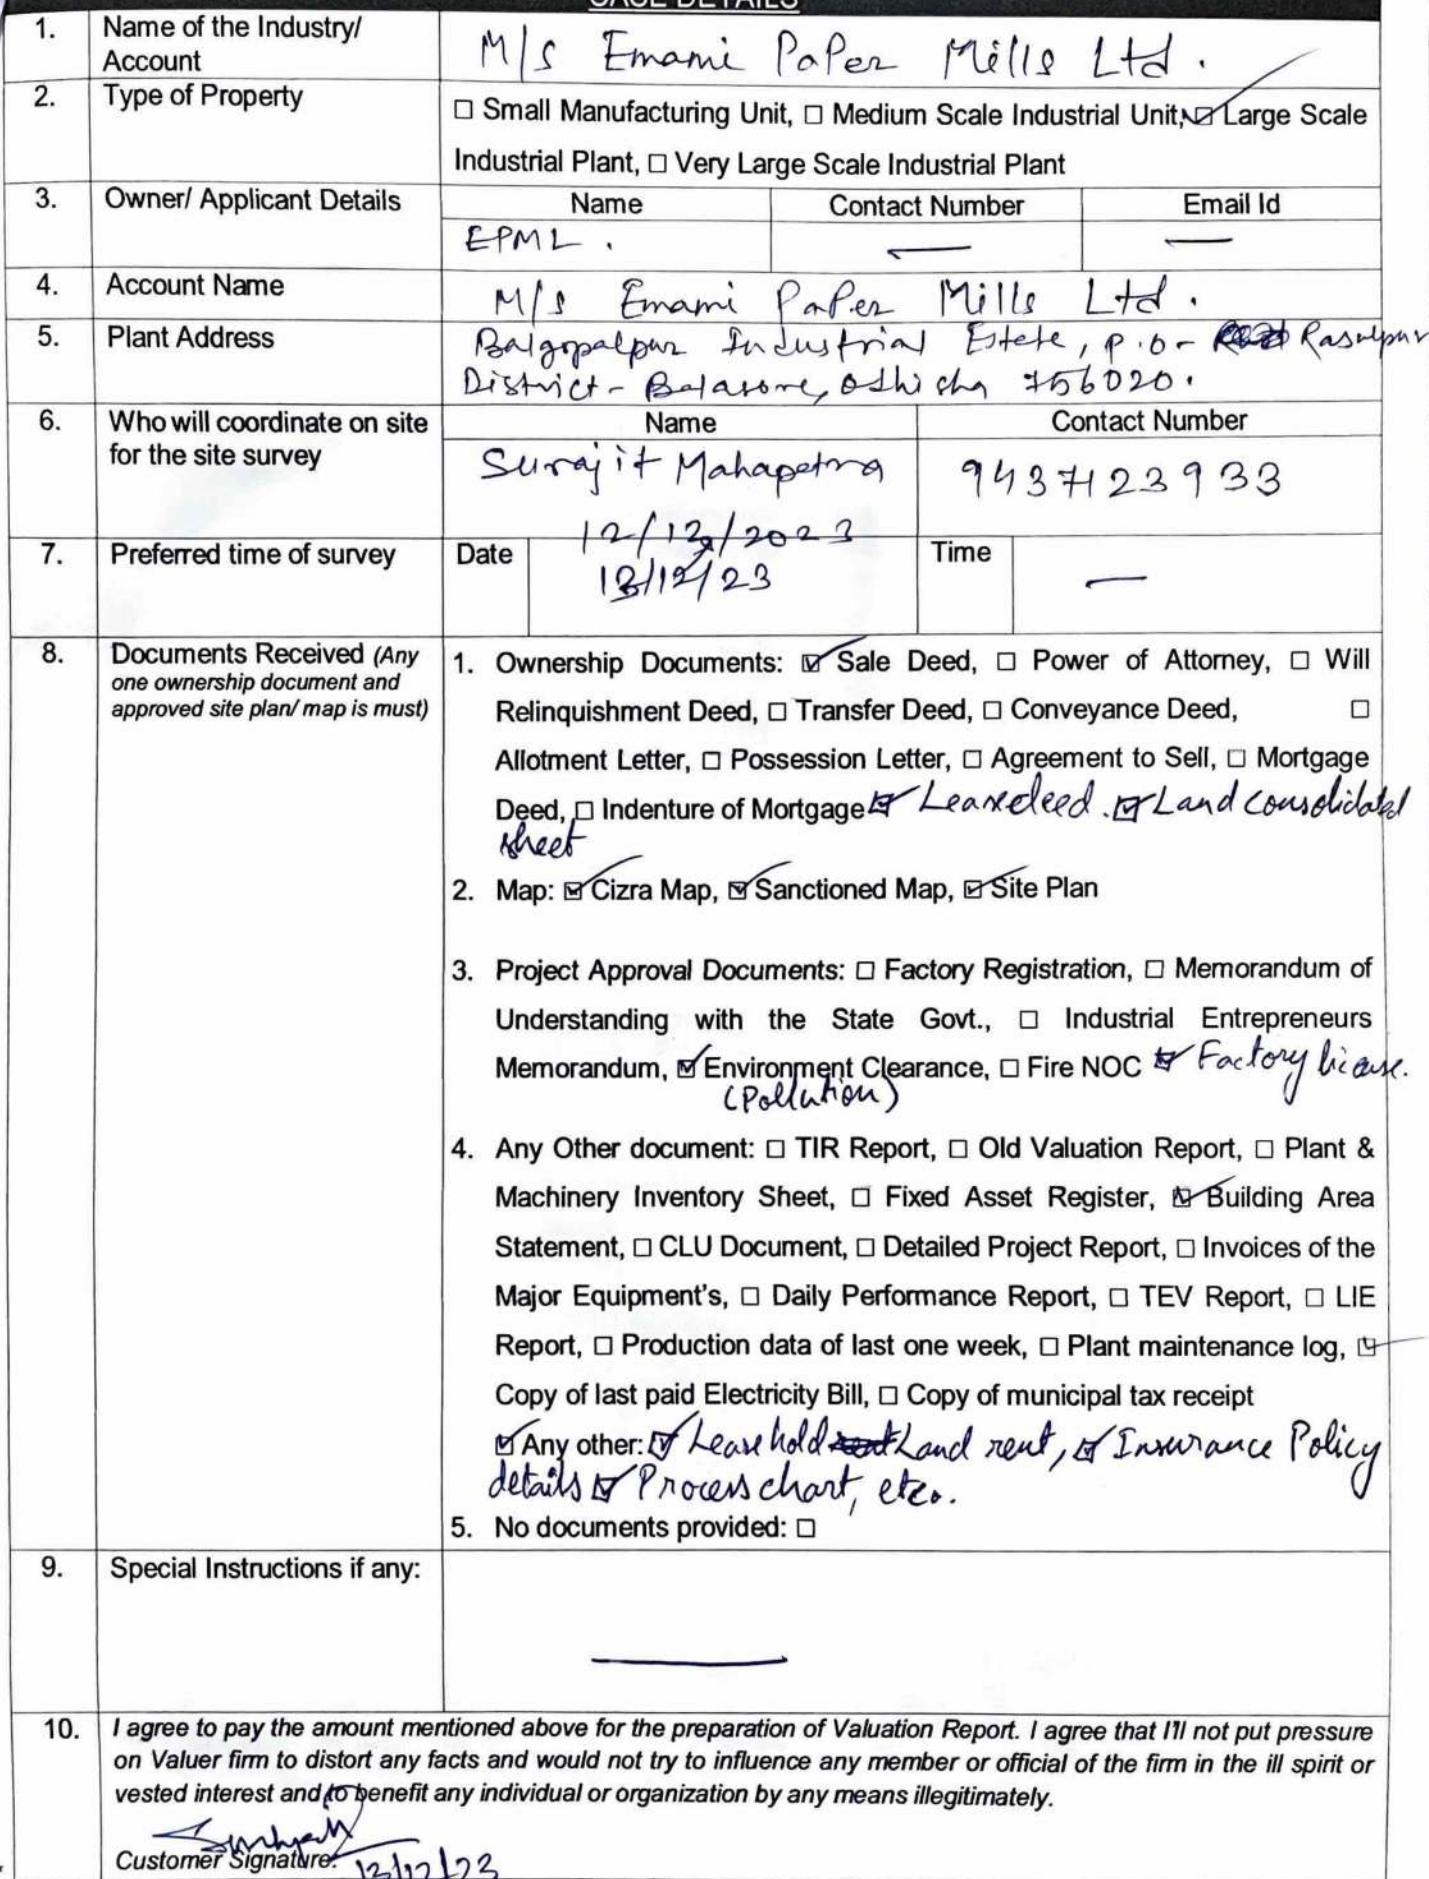 CASE DETAILS
1. Name of the Industry/ Account M/s Emami PaPer Mills Ltd.
2. Type of Property ☐ Small Manufacturing Unit, ☐ Medium Scale Industrial Unit, ☑ Large Scale
Industrial Plant, ☐ Very Large Scale Industrial Plant
3. Owner/ Applicant Details Name Contact Number Email Id
EPML. — —
4. Account Name M/s Emami PaPer Mills Ltd.
5. Plant Address Balgopalpur Industrial Estete, P.O- Rasulpur
District- Balasore, Odhisha 756020.
6. Who will coordinate on site for the site survey Name Contact Number
Surajit Mahapatra 9437123933
12/12/2023
7. Preferred time of survey Date 13/12/23 Time —
8. Documents Received (Any
one ownership document and
approved site plan/ map is must)
1. Ownership Documents: ☑ Sale Deed, ☐ Power of Attorney, ☐ Will
Relinquishment Deed, ☐ Transfer Deed, ☐ Conveyance Deed, ☐
Allotment Letter, ☐ Possession Letter, ☐ Agreement to Sell, ☐ Mortgage
Deed, ☐ Indenture of Mortgage ☑ Leasedeed. ☑ Land consolidated
sheet
2. Map: ☑ Cizra Map, ☑ Sanctioned Map, ☑ Site Plan
3. Project Approval Documents: ☐ Factory Registration, ☐ Memorandum of
Understanding with the State Govt., ☐ Industrial Entrepreneurs
Memorandum, ☑ Environment Clearance, ☐ Fire NOC ☑ Factory license.
(Pollution)
4. Any Other document: ☐ TIR Report, ☐ Old Valuation Report, ☐ Plant &
Machinery Inventory Sheet, ☐ Fixed Asset Register, ☑ Building Area
Statement, ☐ CLU Document, ☐ Detailed Project Report, ☐ Invoices of the
Major Equipment's, ☐ Daily Performance Report, ☐ TEV Report, ☐ LIE
Report, ☐ Production data of last one week, ☐ Plant maintenance log, ☑
Copy of last paid Electricity Bill, ☐ Copy of municipal tax receipt
☑ Any other: ☑ Lease hold Land rent, ☑ Insurance Policy
details ☑ Process chart, etc.
5. No documents provided: ☐
9. Special Instructions if any: —
10. I agree to pay the amount mentioned above for the preparation of Valuation Report. I agree that I'll not put pressure
on Valuer firm to distort any facts and would not try to influence any member or official of the firm in the ill spirit or
vested interest and to benefit any individual or organization by any means illegitimately.
Customer Signature: 13/12/23